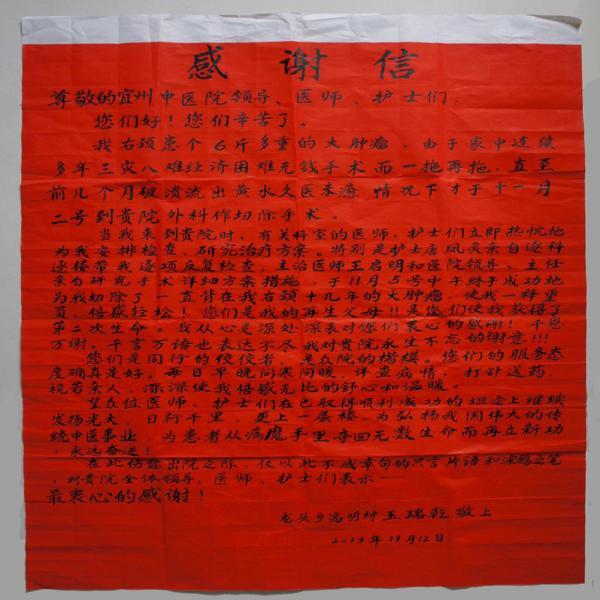 感谢信
尊敬的宜州中医院领导、医师、护士们:
您们好!您们辛苦了。
我右颈患个6斤多重的大肿瘤,由于家中连续
多年三灾八难经济困难无钱手术而一拖再拖,直至
前几个月破溃流出黄水久医未瘳情况下才于十一月
二号到贵院外科作切除手术。
当我来到贵院时,有关科室的医师、护士们立即热忱地
为我安排检查、研究治疗方案。特别是护士唐凤灵亲自逐科
逐楼带我逐项反复检查,主治医师王启明和医院领导、主任
亲自研究手术详细方案措施,于11月5号中午终于成功地
为我切除了一直背在我右颈十几年的大肿瘤,使我一释重
负,倍感轻松!您们是我的再生父母!!是您们使我获得了
第二次生命。我从心是深处深表对您们衷心的感谢!千恩
万谢,千言万语也表达不尽我对贵院永生不忘的谢意!!!
您们是同行的佼佼者,是众院的楷模。您们的服务态
度确真是好。每日早晚问寒问暖,详查病情,打针送药,
视若亲人,深深使我倍感无比的舒心和温暖。
望众位医师、护士们在已取得顺利成功的坦途上继续
发扬光大,日行千里,更上一层楼,为弘扬我国伟大的传
统中医事业,为患者从病魔手里夺回无数生命而再立新功
,永远奋进!
在此伤愈出院之际,仅以此不成章句的只言片语和涂鸦之笔
,对贵院全体领导、医师、护士们表示——
最衷心的感谢!
龙头乡高明村玉瑞乾敬上
2013年11月12日